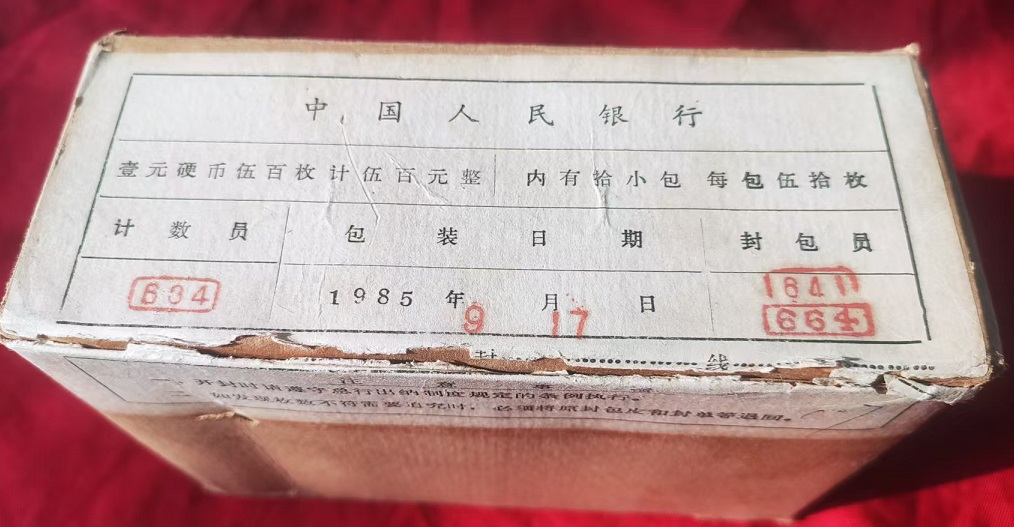 中国人民银行
壹元硬币伍百枚计伍百元整 内有拾小包 每包伍拾枚
计数员 包装日期 封包员
604 1985年9月17日 641
664
封 线
注意事项
一、开封时请遵守银行出纳制度规定的条例执行。
如发现枚数不符需要追究时，必须将原封包皮和封签等退回。